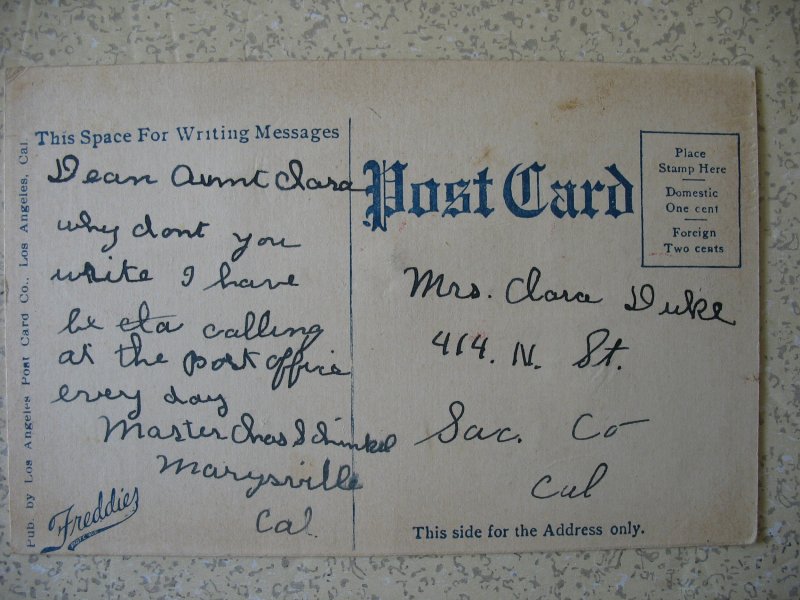 This Space For Writing Messages
Dear Aunt Clara
why dont you
write I have
be eta calling
at the post office
every day
Master Chas Schinkel
Marysville
Cal
Freddies
Pub. by Los Angeles Post Card Co., Los Angeles, Cal.
Post Card
Place
Stamp Here
Domestic
One cent
Foreign
Two cents
Mrs. Clara Duke
414. N. St.
Sac. Co
Cal
This side for the Address only.